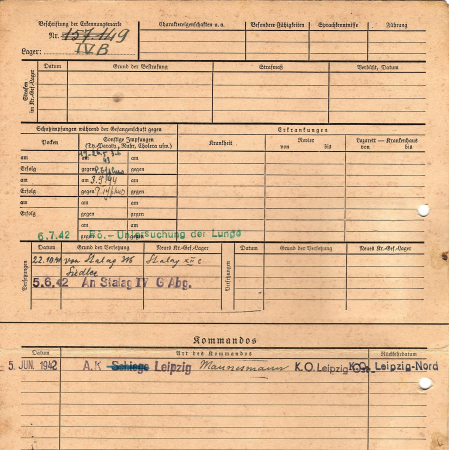 Beschriftung der Erkennungsmarke
Nr. 157149
Lager: IV B
Charaktereigenschaften u. a.
Besondere Fähigkeiten
Sprachkenntnisse
Führung
Strafen im Kr.-Gef.-Lager
Datum
Grund der Bestrafung
Strafmaß
Verbüßt, Datum
Schutzimpfungen während der Gefangenschaft gegen
Erkrankungen
Pocken
Sonstige Impfungen
(Ty.-Paraty., Ruhr, Cholera usw.)
Krankheit
Revier
von bis
Lazarett - Krankenhaus
von bis
am am am
Erfolg gegen gegen
am am 3.3.44 am
Erfolg gegen gegen
am am am
Erfolg gegen gegen
am am am
gegen gegen
6.7.42 Rö.-Untersuchung der Lunge
Versetzungen
Datum
Grund der Versetzung
Neues Kr.-Gef.-Lager
Datum
Grund der Versetzung
Neues Kr.-Gef.-Lager
22.10.41 von Stalag 316 Stalag XII C
Siedlce
5.6.42 An Stalag IV G Abg.
Kommandos
Datum
Art des Kommandos
Rückkehrdatum
5. JUN. 1942 A.K. Leipzig Mannesmann K.O. Leipzig-Ost K.O. Leipzig-Nord